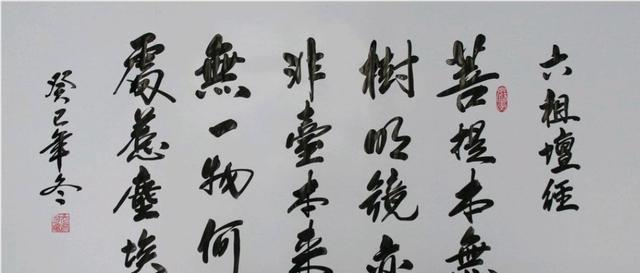 六祖壇經
菩提本無
樹明鏡亦
非臺本来
無一物何
處惹塵埃
癸巳年冬